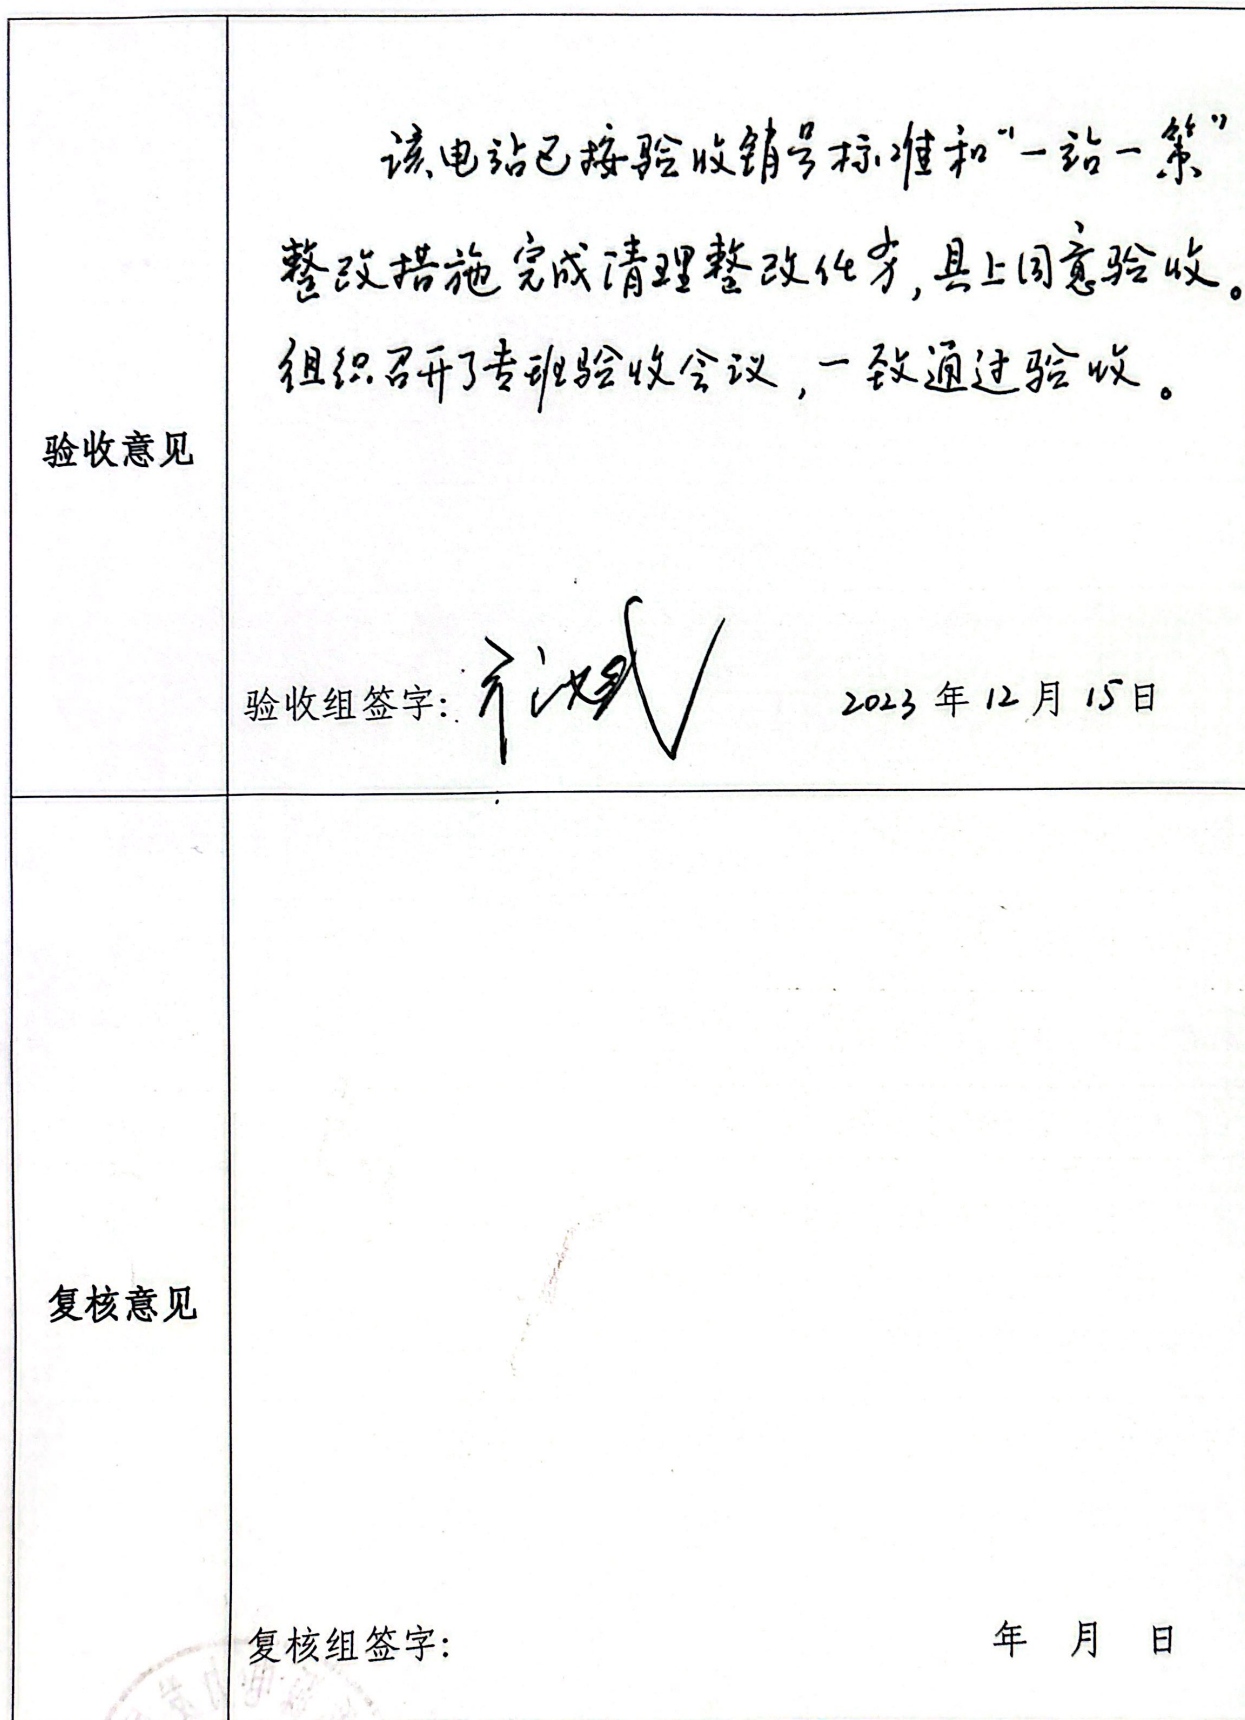 该电站已按验收销号标准和“一站一策”
整改措施完成清理整改任务,县上同意验收。
组织召开了专班验收会议,一致通过验收。
验收意见
验收组签字: 2023年12月15日
复核意见
复核组签字: 年 月 日